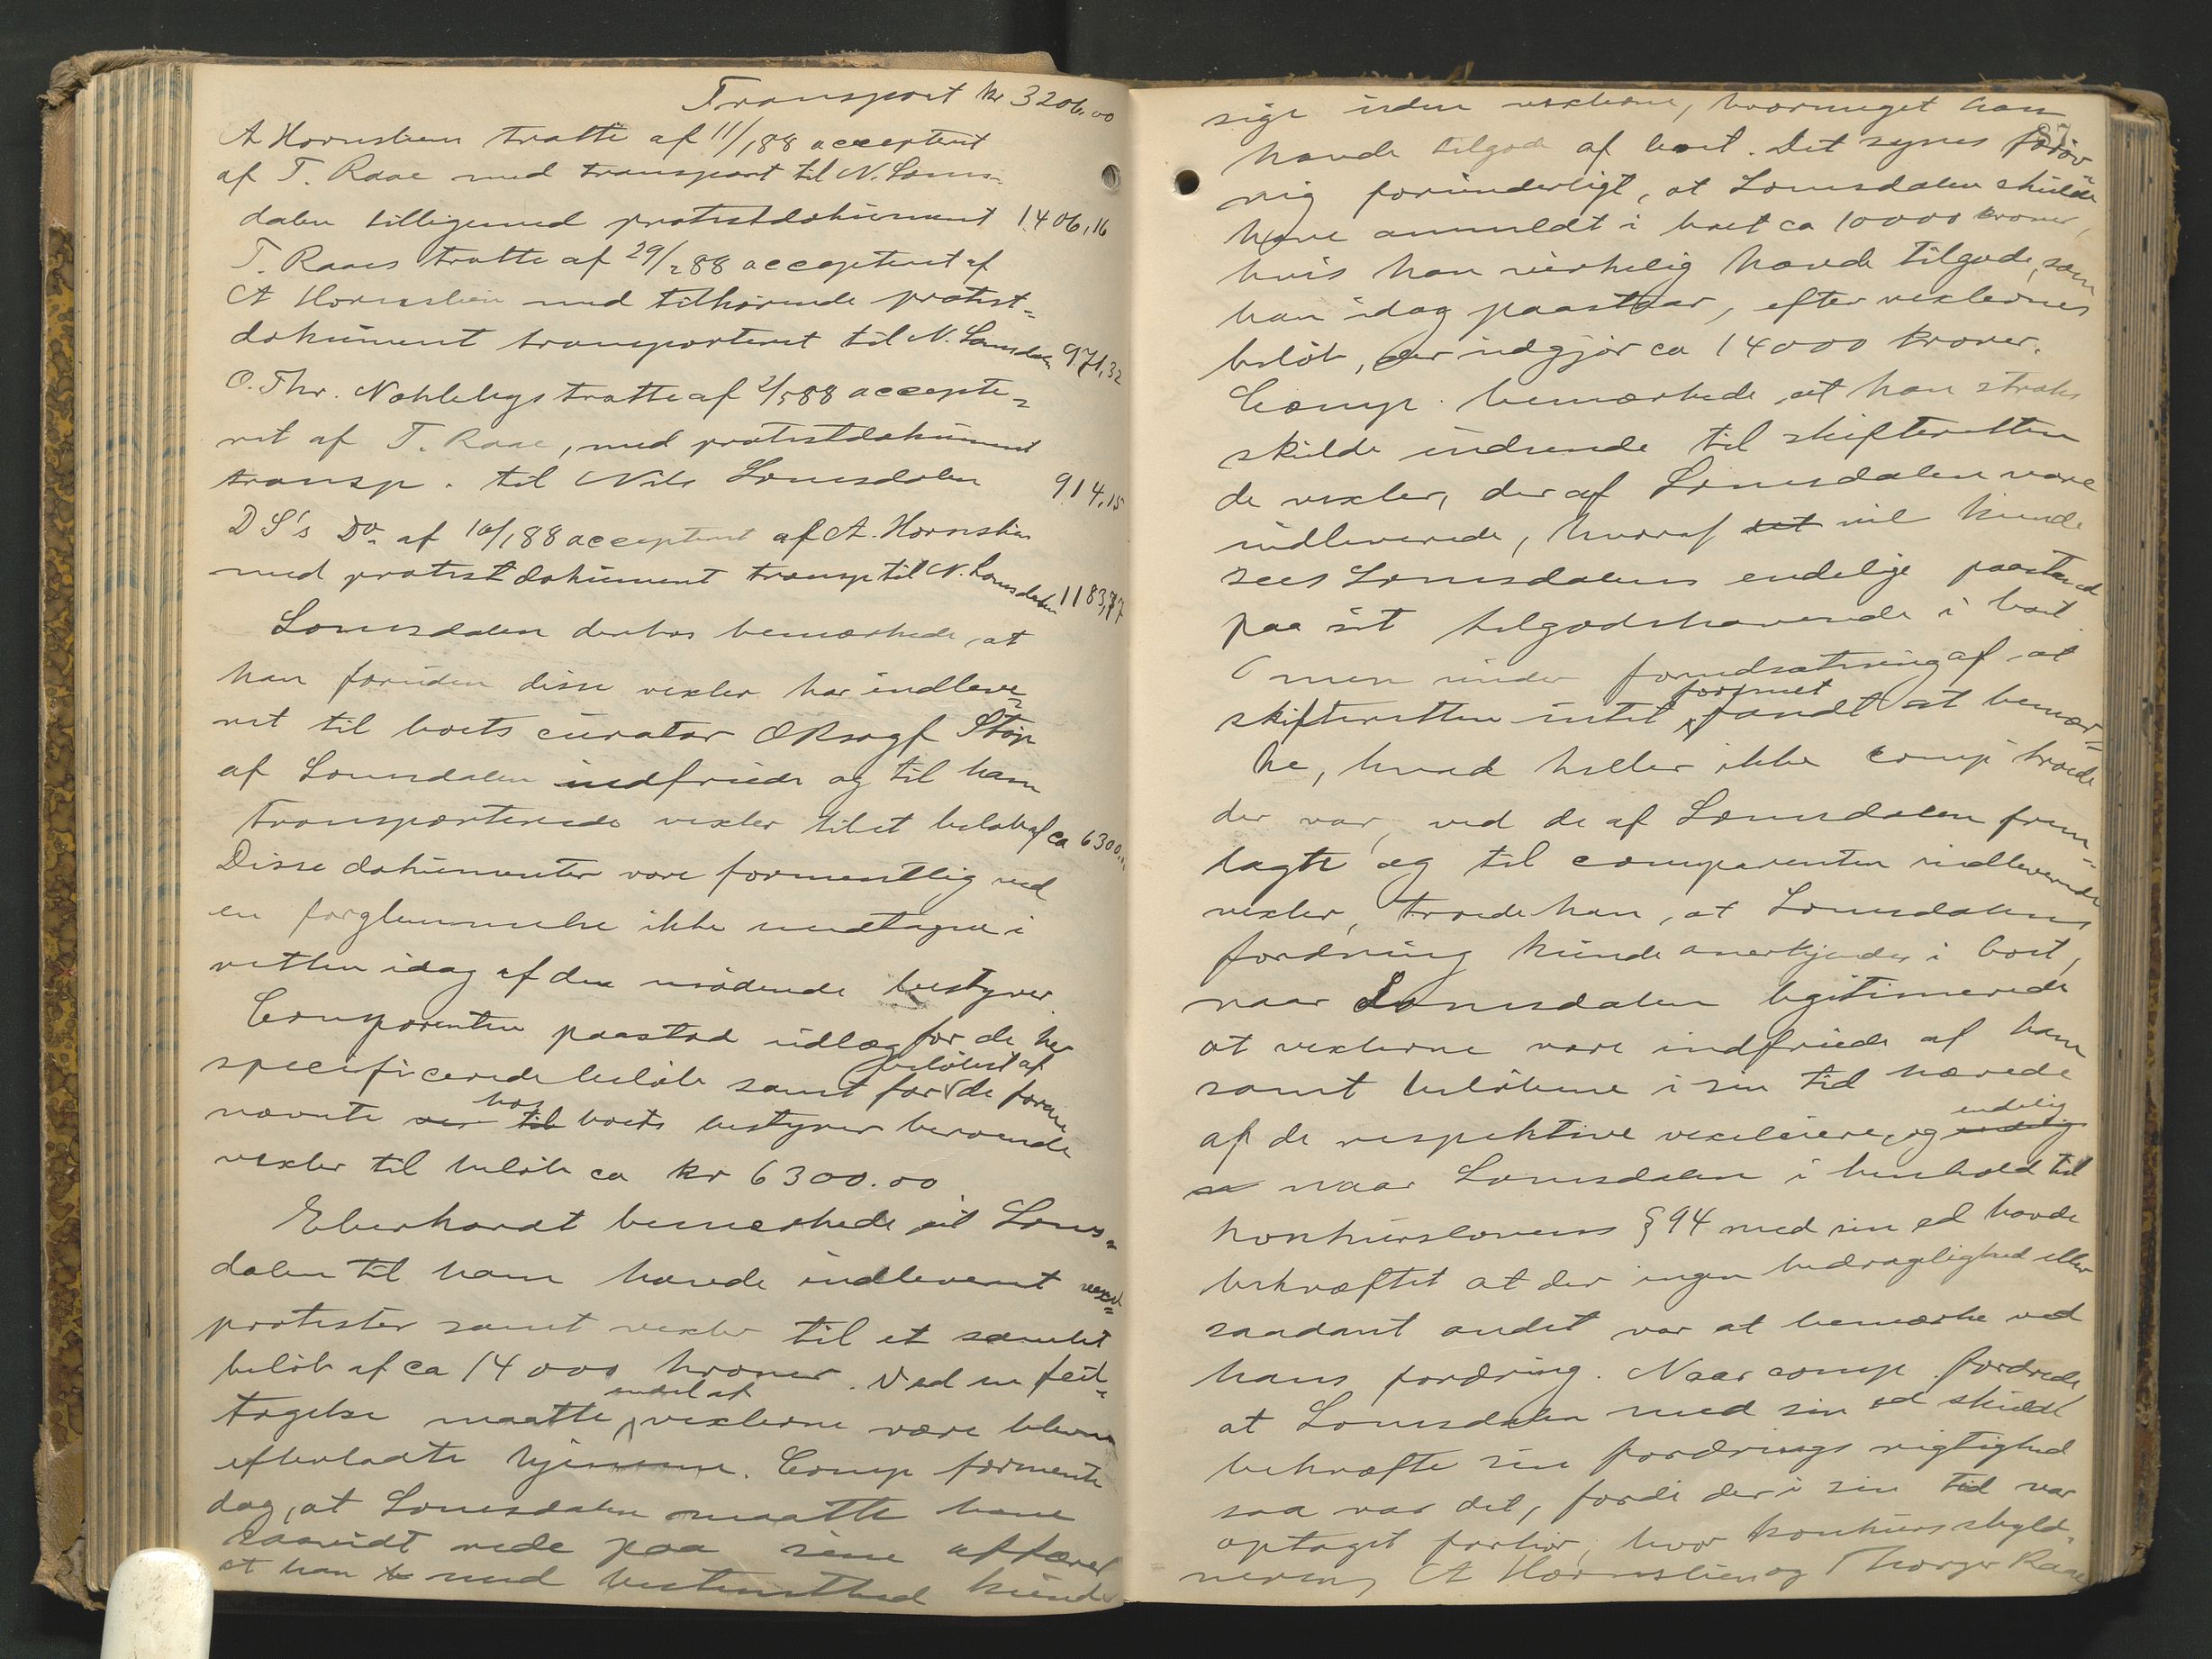 Transport kr 3206.00
A Hornslien tratte af 11/1 88 acceptert
af T. Raae med transport til N. Loms-
dalen tilligemed protestdokument 1406,16
T. Raaes tratte af 29/2 88 acceptert af
A Hornslien med tilhørende protest=
dokument transporteret til N. Lomsdalen 971,32
O. Thr. Nohlebys tratte af 2/5 88 accepte=
ret af T. Raae, med protestdokument
transp. til Nils Lomsdalen 914,15
D S's Do. af 10/1 88 acceptert af A. Hornslien
med protestdokument transp til N. Lomsdalen 1183,77
Lomsdalen derhos bemærkede, at
han foruden disse vexler har indleve=
ret til boets curator ORsagf Stöp
af Lomsdalen indfriede og til ham
transporterede vexler til et beløb af ca 6300.00
Disse dokumenter vare formentlig ved
en forglemmelse ikke medtagne i
retten idag af den mødende bestyrer.
Comparenten paastod udlæg for de her
specificerede beløb samt for beløbet af de foran
nævnte hos boets bestyrer beroende
vexler til beløb ca kr 6300.00
Eberhardt bemerkede at Loms=
dalen til ham havde indleveret vexel=
protester samt vexler til et samlet
beløb af ca 14000 kroner. Ved en feil=
tagelse maatte endel af vexlerne være blevne
efterladte hjemme. Comp formente
dog, at Lomsdalen maatte have
saavidt rede paa sine affærer
at han med bestemthed kunde
sige uden vexlerne, hvormeget han
havde tilgode af boet. Det synes forøv=
rig forunderligt, at Lomsdalen skulde
have anmeldt i boet ca 10000 kroner,
hvis han virkelig havde tilgode, som
han idag paastaar, efter vexlernes
beløb, der udgjør ca 14000 kroner.
Comp. bemærkede, at han straks
skulde indsende til skifteretten
de vexler, der af Lomsdalen vare
indleverede, hvoraf vil kunde
sees Lomsdalens endelige paastand
paa sit tilgodehavende i boet.
men under forudsætning af at
skifteretten intet formet fandt at bemær=
ke, hvad heller ikke comp troede
der var, ved de af Lomsdalen frem=
lagte og til comparenten indleverede
vexler, troede han, at Lomsdalens
fordring kunde anerkjendes i boet,
naar Lomsdalen legitimerede
at vexlerne vare indfriede af ham
samt beløbene i sin tid hævede
af de respektive vexeleiere, og endelig
naar Lomsdalen i henhold til
konkurslovens § 94 med sin ed havde
bekræftet at der ingen bedragelighed eller
saadant andet var at bemærke ved
hans fordring. Naar comp. fordrede
at Lomsdalen med sin ed skulde
bekræfte sin fordrings rigtighed
saa var det, fordi der i sin tid var
optaget forhør, hvor konkursskyld=
nerens A Hornslien og Thorger Raae